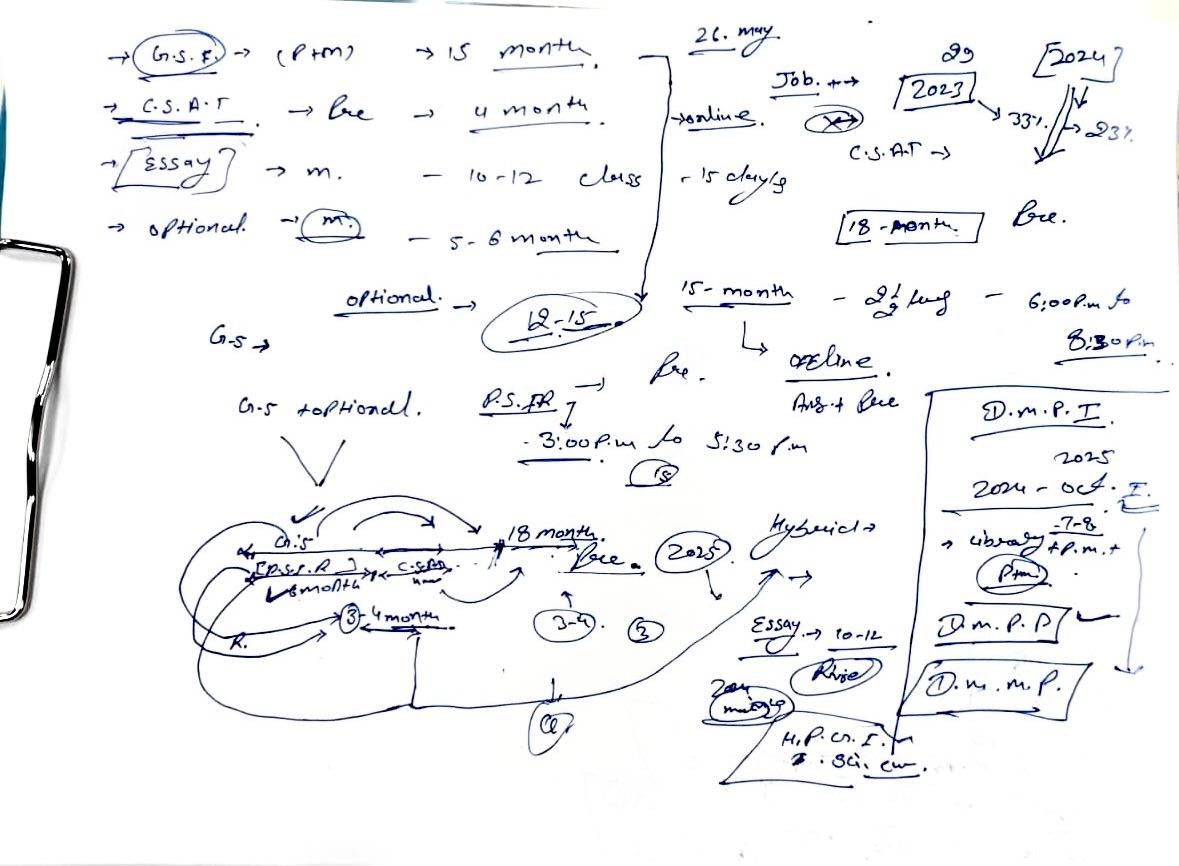 → G.S.F. → (P+M) → 15 month.
→ C.S.A.T. → Pre → 4 month.
→ [Essay] → m. - 10-12 class - 15 days
→ optional. → m. - 5-6 month
26. may.
Job. →
→ online.
29
[2023] → 33%.
[2024] → 23%
C.S.A.T →
[18-month] Pre.
optional. → 12-15.
15-month - 2½ - 6:00 P.m to
8:30 P.m.
offline.
Ans. + Pre
G.S →
G.S + optional.
P.S.IR → Pre.
- 3:00 P.m to 5:30 P.m
15
G.S
18 month.
Pre.
2025.
Hybrid →
[P.S.I.R]
6 month
C.SAT
3-4 month.
R.
3-4.
3
Q
Essay. → 10-12
2024
mains
H.P. G. I.
Sci.
D.M.P.I.
2025
2024 - Oct. I.
→ Library 7-8
+P.m.+
P+m
D.M.P.P
D.M.M.P.